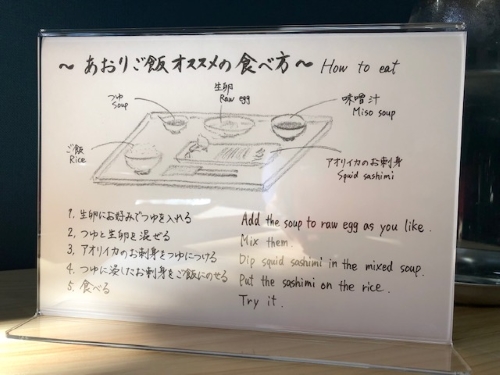 ～ あおりご飯 オススメの 食べ方 ～ How to eat
つゆ
Soup
生卵
Raw egg
味噌汁
Miso soup
ご飯
Rice
アオリイカのお刺身
Squid sashimi
1. 生卵にお好みでつゆを入れる Add the soup to raw egg as you like.
2. つゆと生卵を混ぜる Mix them.
3. アオリイカのお刺身をつゆにつける Dip squid sashimi in the mixed soup.
4. つゆに浸したお刺身をご飯にのせる Put the sashimi on the rice.
5. 食べる Try it.